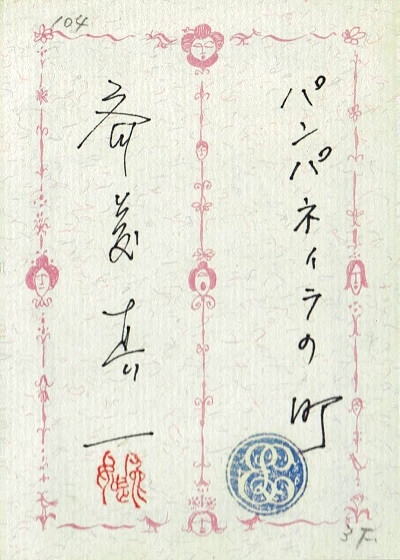 104
パンパネイラの町
斎藤真一